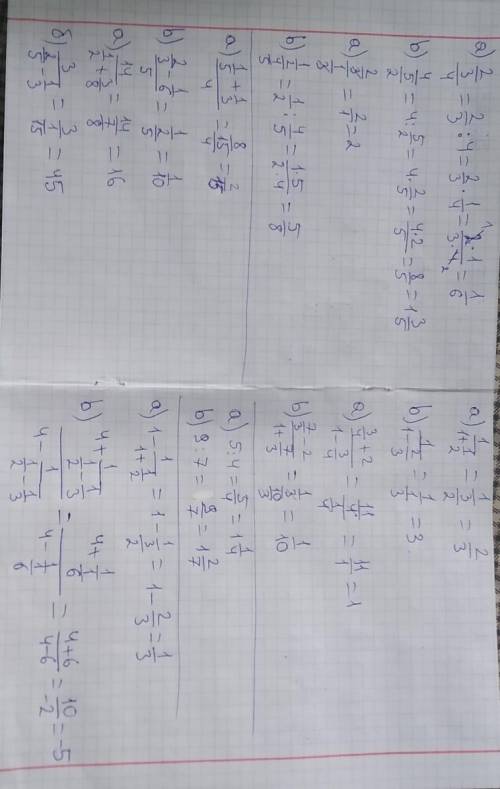 a) (2/3)/4 = 2/3 : 4 = 2/3 · 1/4 = (2·1)/(3·4) = 1/6
b) 4/(5/2) = 4 : 5/2 = 4 · 2/5 = (4·2)/5 = 8/5 = 1 3/5
a) (2/8)/(1/8) = 2/1 = 2
b) (1/2)/(4/5) = 1/2 : 4/5 = (1·5)/(2·4) = 5/8
a) (1/5 + 1/3)/4 = (8/15)/4 = 2/15
b) (2/3 - 1/6)/5 = (1/2)/5 = 1/10
a) 14/(1/2 + 3/8) = 14/(7/8) = 16
б) 3/(2/5 - 1/3) = 3/(1/15) = 45
a) 1/(1 + 1/2) = 1/(3/2) = 2/3
b) 1/(1 - 2/3) = 1/(1/3) = 3
a) (3/4 + 2)/(1 - 3/4) = (11/4)/(1/4) = 11/1 = 1
b) (7/3 - 2)/(1 + 7/3) = (1/3)/(10/3) = 1/10
a) 5 : 4 = 5/4 = 1 1/4
b) 9 : 7 = 9/7 = 1 2/7
a) 1 - 1/(1 + 1/2) = 1 - 1/(3/2) = 1 - 2/3 = 1/3
b) (4 + 1/(1/2 - 1/3))/(4 - 1/(1/2 - 1/3)) = (4 + 1/(1/6))/(4 - 1/(1/6)) = (4+6)/(4-6) = 10/-2 = -5